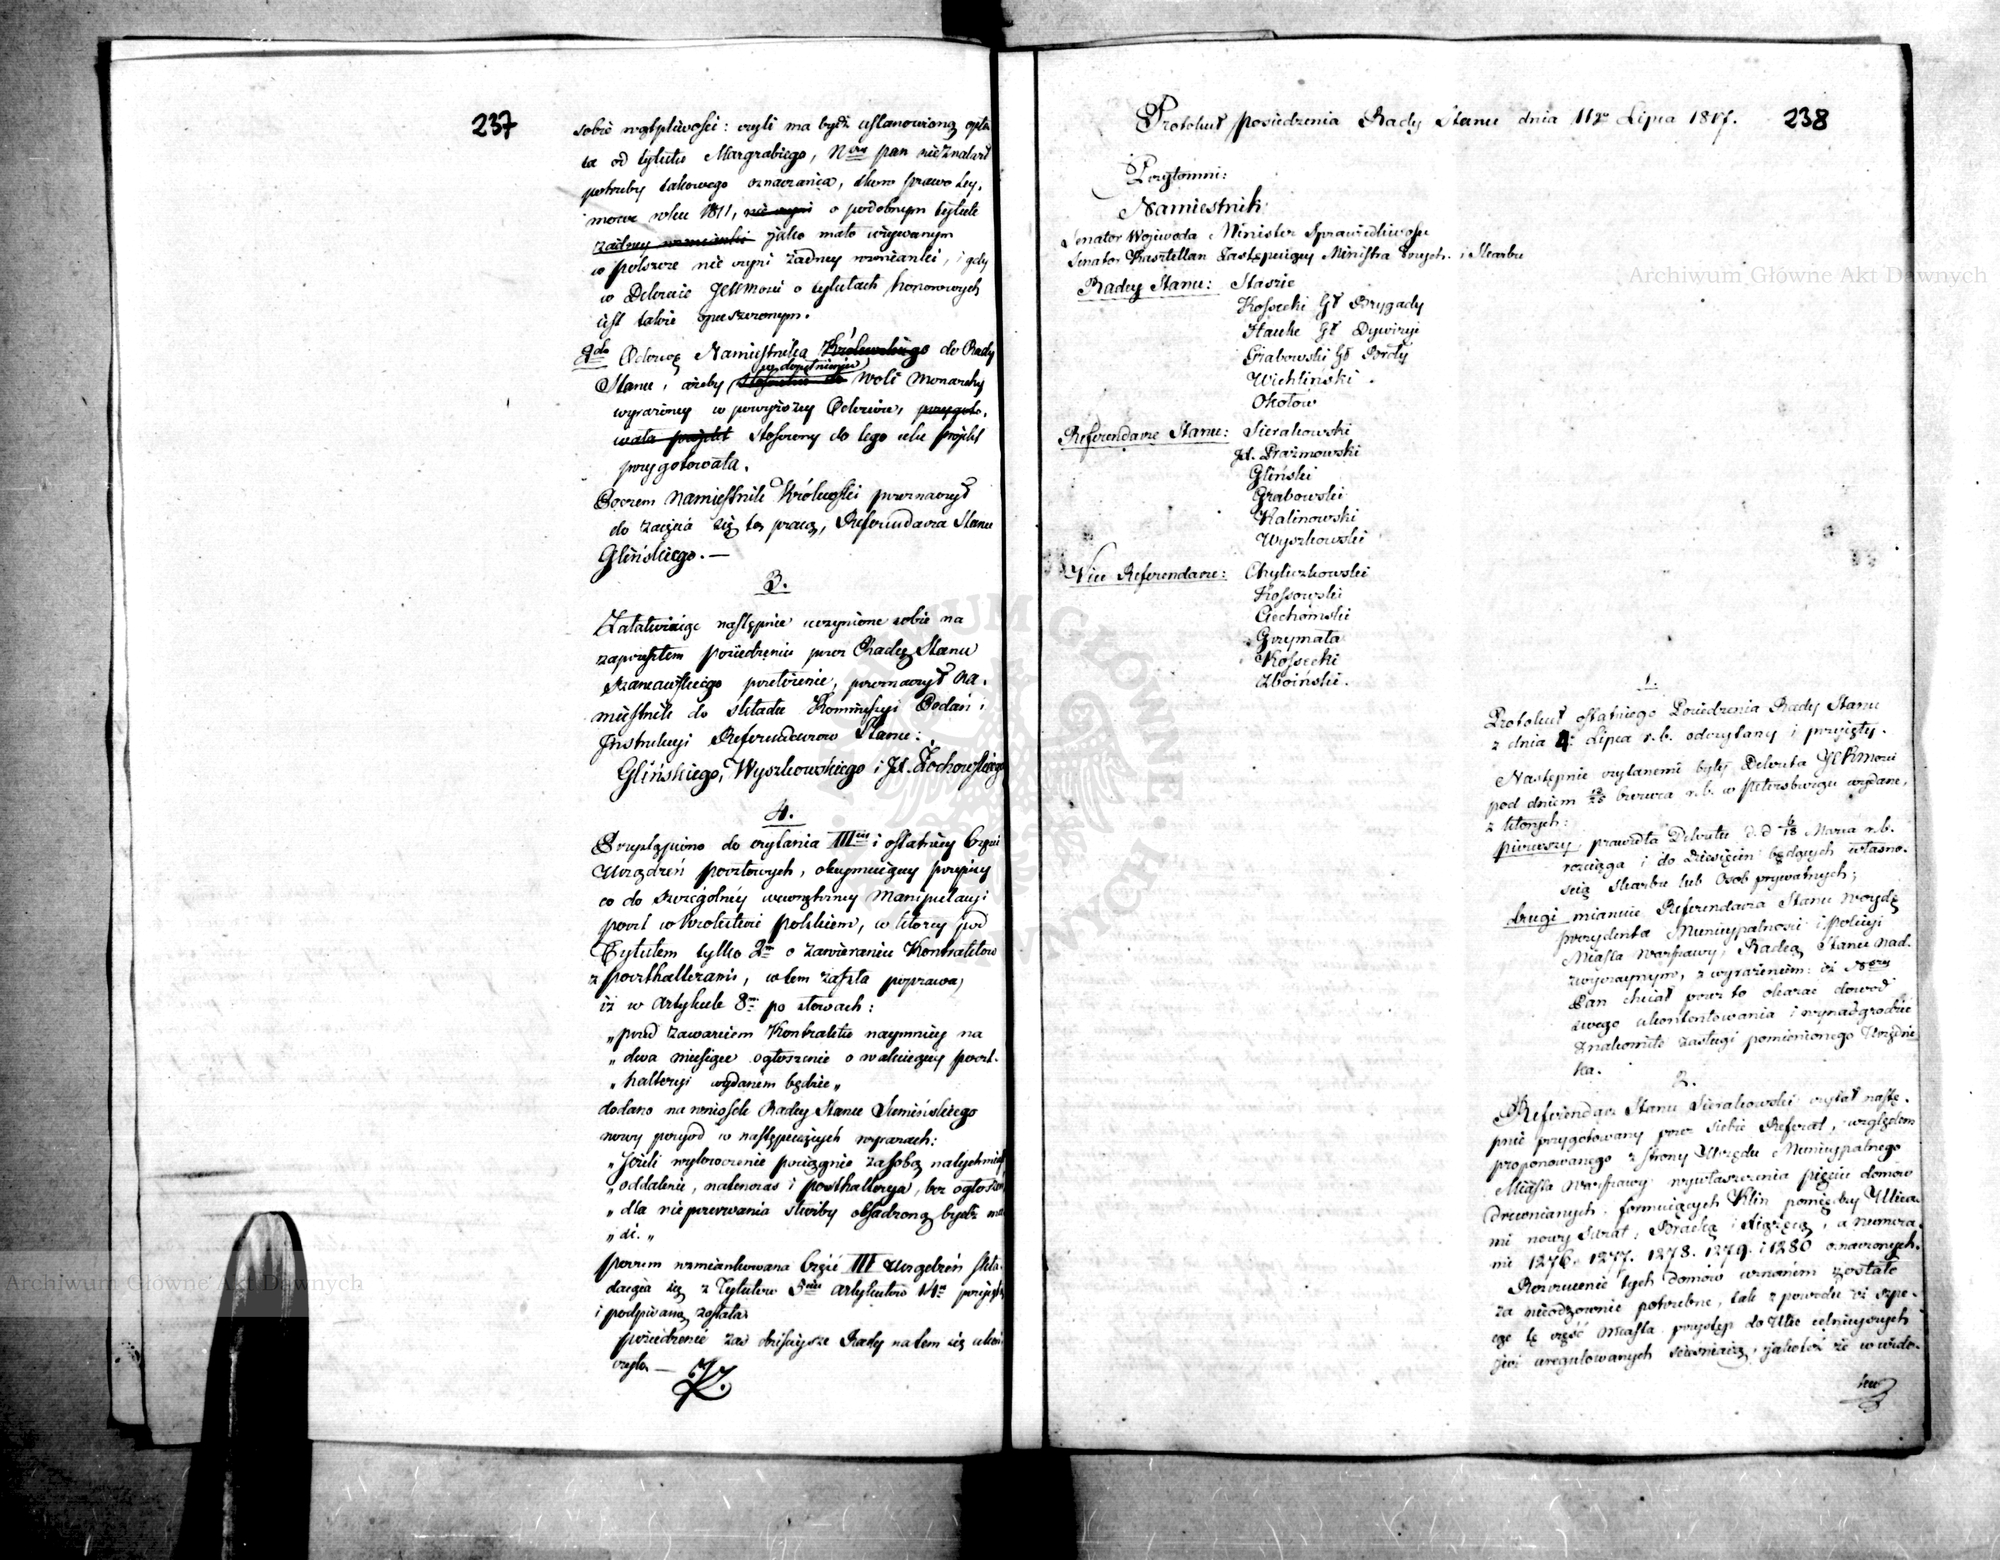 237
sobie wątpliwości: czyli ma bydź ustanowioną opła
ta od tytułu Margrabiego, N̄ pan nieznalazł
potrzeby takowego oznaczenia, skoro prawo Sey,
mowe roku 1811, nie czyni o podobnym tytule
żadney wzmianki jako mało używanym
w Polszcze nie czyni żadney wzmianki, i gdy
w Dekrecie JCKMości o tytułach honorowych
jest także opuszczonym.
2do Odezwę Namiestnika Królewskiego do Rady
w dopełnieniu
Stanu, ażeby stosownie do woli Monarchy
wyrażoney w powyższey Odezwie, przygoto,
wała projekt stosowny do tego celu projekt
przygotowała.
Poczem Namiestnik Królewski przeznaczył
do zajęcia się tą pracą, Referendarza Stanu
Glińskiego. —
3.
Załatwiając następnie uczynione sobie na
zaprzeszłem posiedzeniu przez Radcę Stanu
Szaniawskiego przełożenie, przeznaczył Na,
miestnik do składu Kommissyi Podań i
Instrukcyi Referendarzów Stanu:
Glińskiego, Wyszkowskiego i JX. Żochowskiego
4.
Przystąpiono do czytania IIIciey i ostatniey Części
Urządzeń pocztowych, obeymuiącey przepisy
co do szczególney wewnętrzney Manipulacyi
poczt w Królestwie Polskiem, w którey pod
Tytułem tylko 2m o zawieraniu Kontraktów
z poczthalterami, w tem zaszła poprawa,
iż w Artykule 8m po słowach:
„przed zawarciem Kontraktu naymniey na
„dwa miesiące ogłoszenie o wakuiącey poczt-
„halteryi wydanem będzie„
dodano na wniosek Radcy Stanu Sumińskiego
nowy peryod w następuiących wyrazach:
„Jeżeli wykroczenie pociągnie za sobą natychmiast
„oddalenie, natenczas i poczthalterya, bez ogłoszenia
„dla nieprzerwania służby obsadzoną bydź mo
„że. „
poczem wzmiankowana Część III Urządzeń skła-
daiąca się z Tytułów 5ciu Artykułów 14 przyjęta
i podpisaną została.
posiedzenie zaś dzisieysze Rady na tem się ukoń
czyło —
238
Protokuł posiedzenia Rady Stanu dnia 11go Lipca 1817.
Przytomni:
Namiestnik
Senator Wojewoda Minister Sprawiedliwości
Senator Kasztellan Zastępuiący Ministra Przych. i Skarbu
Radcy Stanu: Staszic
Kossecki Gł Brygady
Hauke Gł Dywizyi
Grabowski Gł Brdy
Wichliński
Okołow
Referendarze Stanu: Sierakowski
JX. Prażmowski
Gliński
Grabowski
Kalinowski
Wyszkowski
Vice Referendarze: Chyliczkowski
Kossowski
Ciechomski
Grzymała
Kossecki
Zboiński.
1.
Protokuł ostatniego Posiedzenia Rady Stanu
z dnia 4: Lipca r.b. odczytany i przyjęty.
Następnie czytanemi były Dekreta JCKMości
pod dniem 13/25 Czerwca r.b. w Petersburgu wydane,
z których:
pierwszy prawidła Dekretu d. d 6/18 Marca r.b.
rozciąga i do Dziesięcin będących własno-
ścią Skarbu lub Osób prywatnych;
drugi mianuie Referendarza Stanu Woydę
prezydenta Municypalności i Policyi
Miasta Warszawy, Radcą Stanu nad-
zwyczaynym, z wyrażeniem: iż N
Pan chciał przez to okazać dowód
swego ukontentowania i wynadgrodzić
znakomite zasługi pomienionego Urzędni-
ka.
2.
Referendarz Stanu Sierakowski czytał nastę-
pnie przygotowany przez siebie Referat, względem
proponowanego z strony Urzędu Municypalnego
Miasta Warszawy wywłaszczenia pięciu domów
drewnianych, formuiących Klin pomiędzy Ulica-
mi nowy Świat, Bracką i Xiążęcą, a numera-
mi 1276. 1277. 1278. 1279. i 1280 oznaczonych.
Rozrzucenie tych domów uznanem zostało
za nieodzownie potrzebne, tak z powodu iż szpe-
cąc tę część Miasta przystęp do Ulic celnieyszych
już uregulowanych ścieśniaią, jakoteż że w wido-
ku